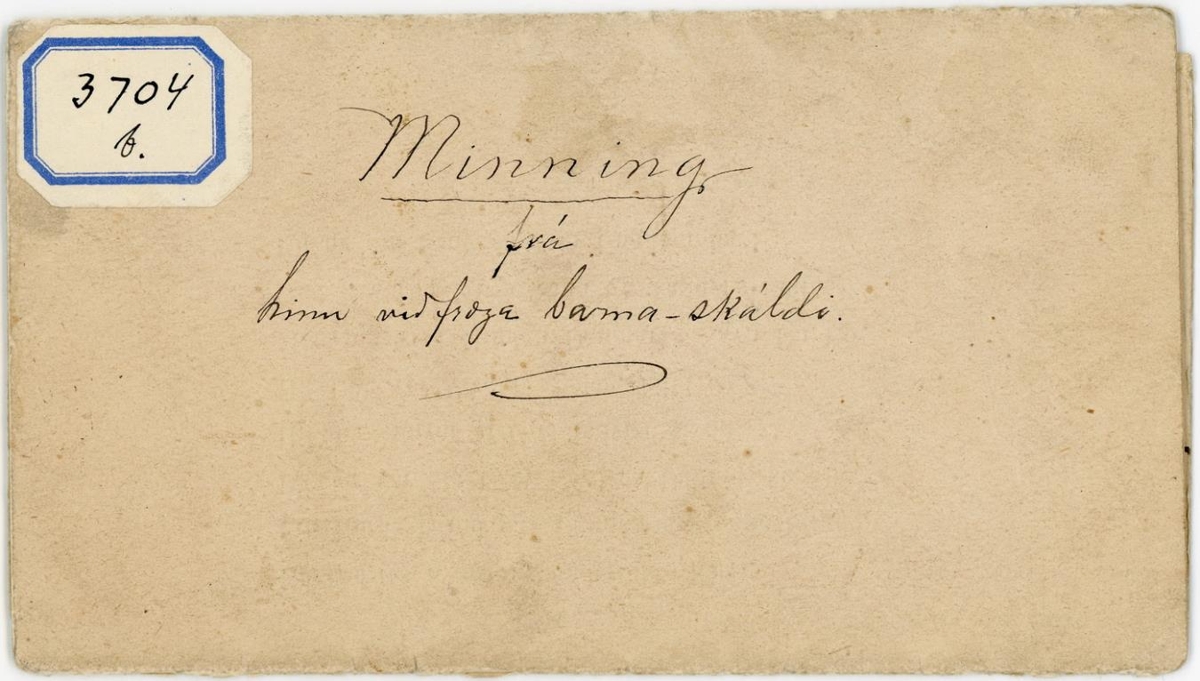 3704
b.
Minning
frá
hinu viðfræga barna-skáldi.